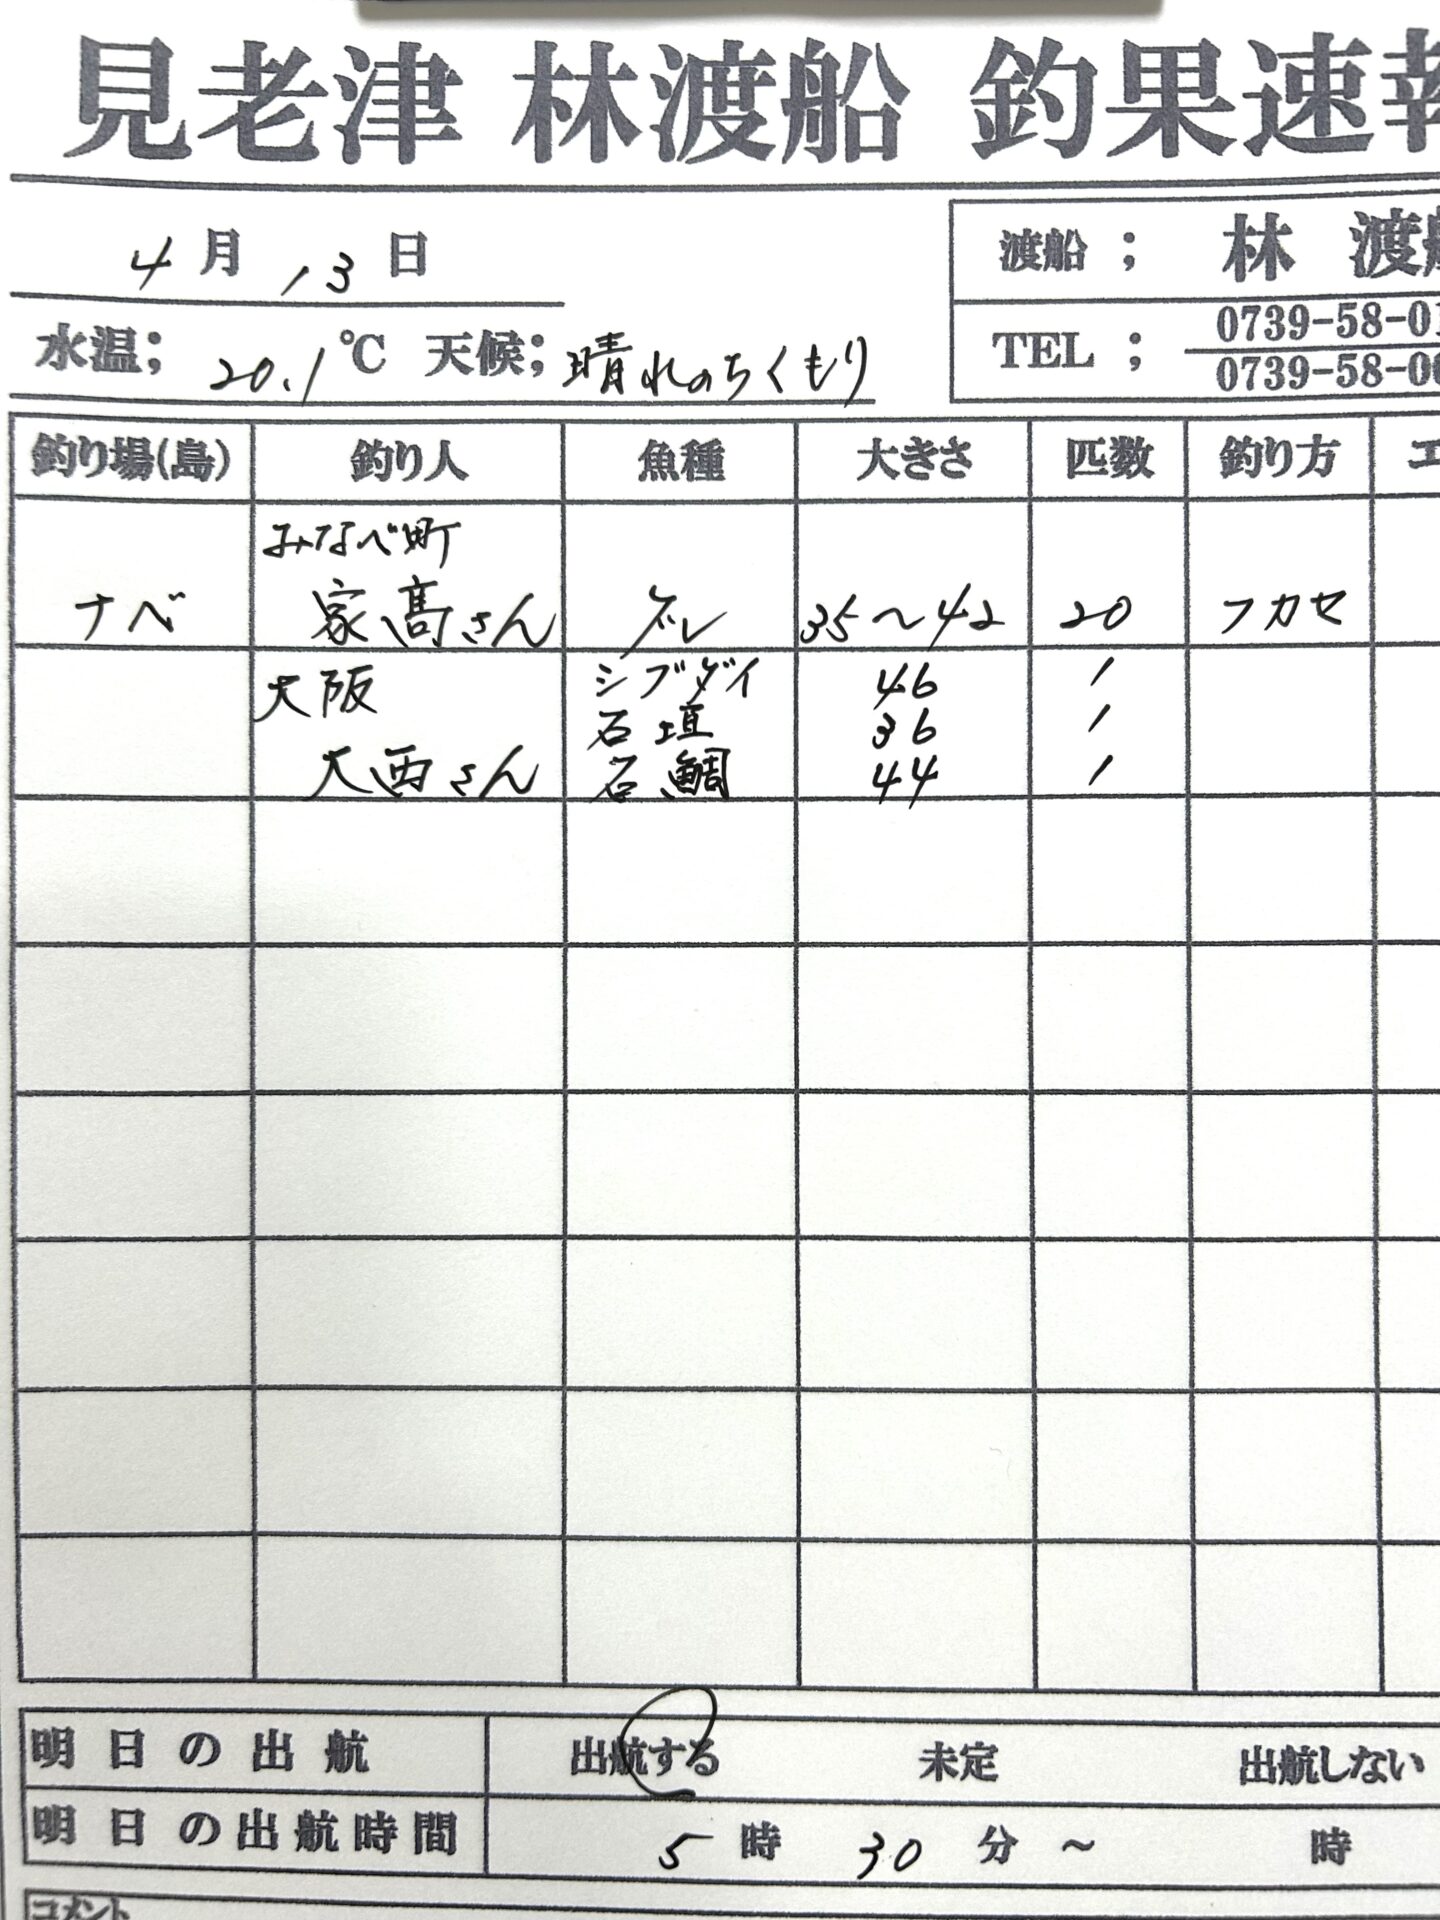 見老津 林渡船 釣果速報
4月13日
渡船； 林 渡船
水温；20.1℃ 天候；晴れのちくもり
TEL； 0739-58-01
0739-58-00
釣り場(島) 釣り人 魚種 大きさ 匹数 釣り方 エ
みなべ町
ナベ 家髙さん グレ 35～42 20 フカセ
大阪 シブダイ 46 1
石垣 36 1
大西さん 石鯛 44 1
明日の出航 出航する 未定 出航しない
明日の出航時間 5時30分～ 時
コメント